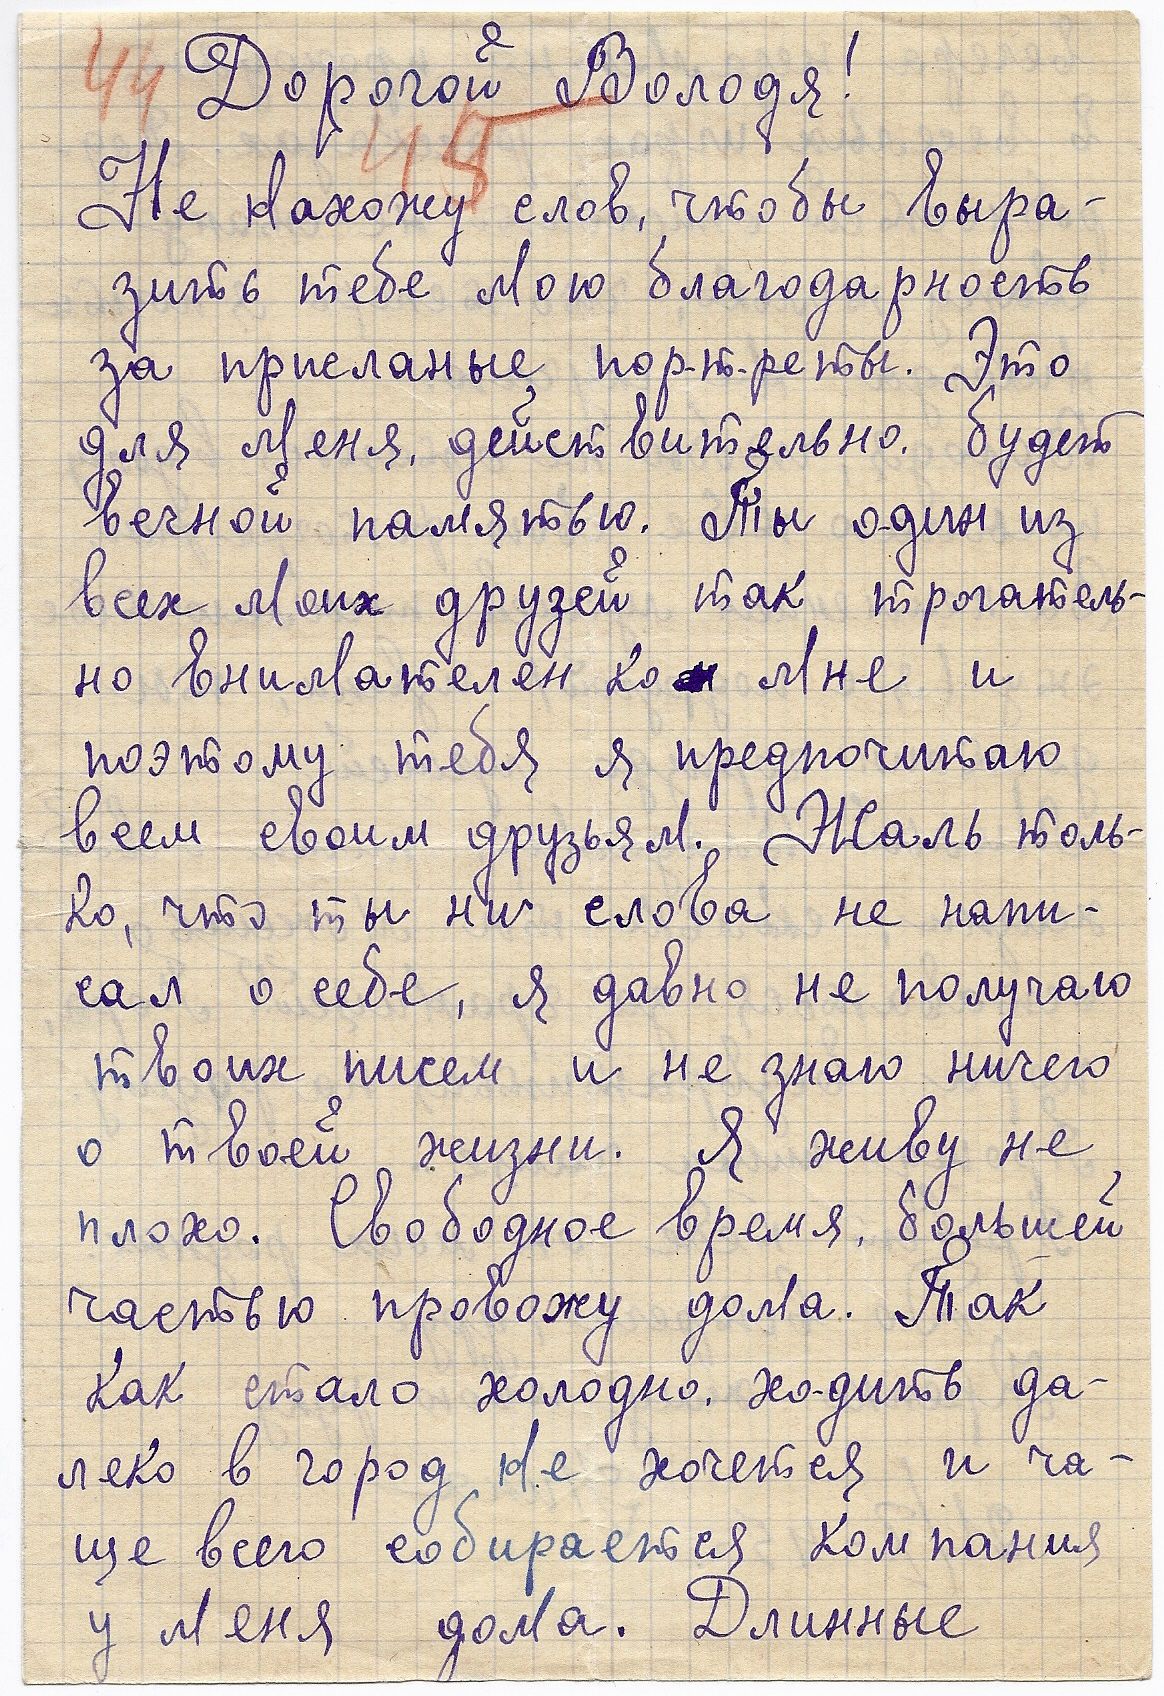 44
Дорогой Володя!
45
Не нахожу слов, чтобы выра-
зить тебе мою благодарность
за присланые портреты. Это
для меня, действительно, будет
вечной памятью. Ты один из
всех моих друзей так трогатель-
но внимателен ко мне и
поэтому тебя я предпочитаю
всем своим друзьям. Жаль толь-
ко, что ты ни слова не напи-
сал о себе, я давно не получаю
твоих писем и не знаю ничего
о твоей жизни. Я живу не
плохо. Свободное время, большей
частью провожу дома. Так
как стало холодно, ходить да-
леко в город не хочется и ча-
ще всего собирается компания
у меня дома. Длинные